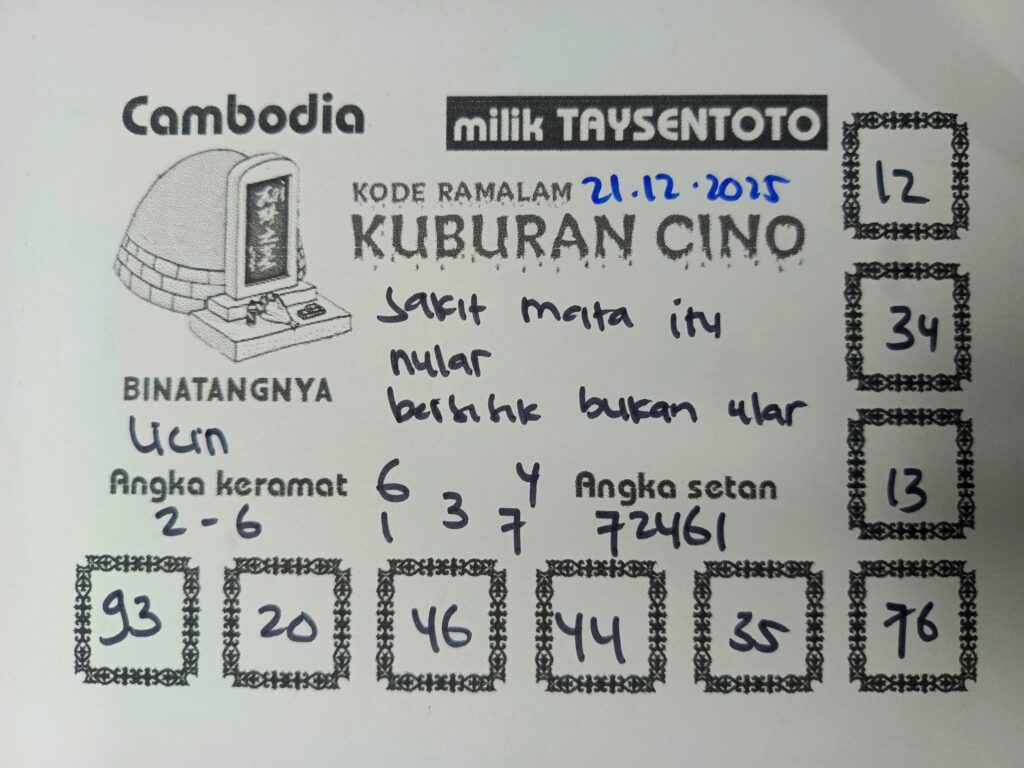 Cambodia
milik TAYSENTOTO
KODE RAMALAM 21.12.2025
KUBURAN CINO
sakit mata itu
nular
bersisik bukan ular
BINATANGNYA
Licin
Angka keramat
2 - 6
6 4
3
1 7
Angka setan
72461
12
34
13
93 20 46 44 35 76